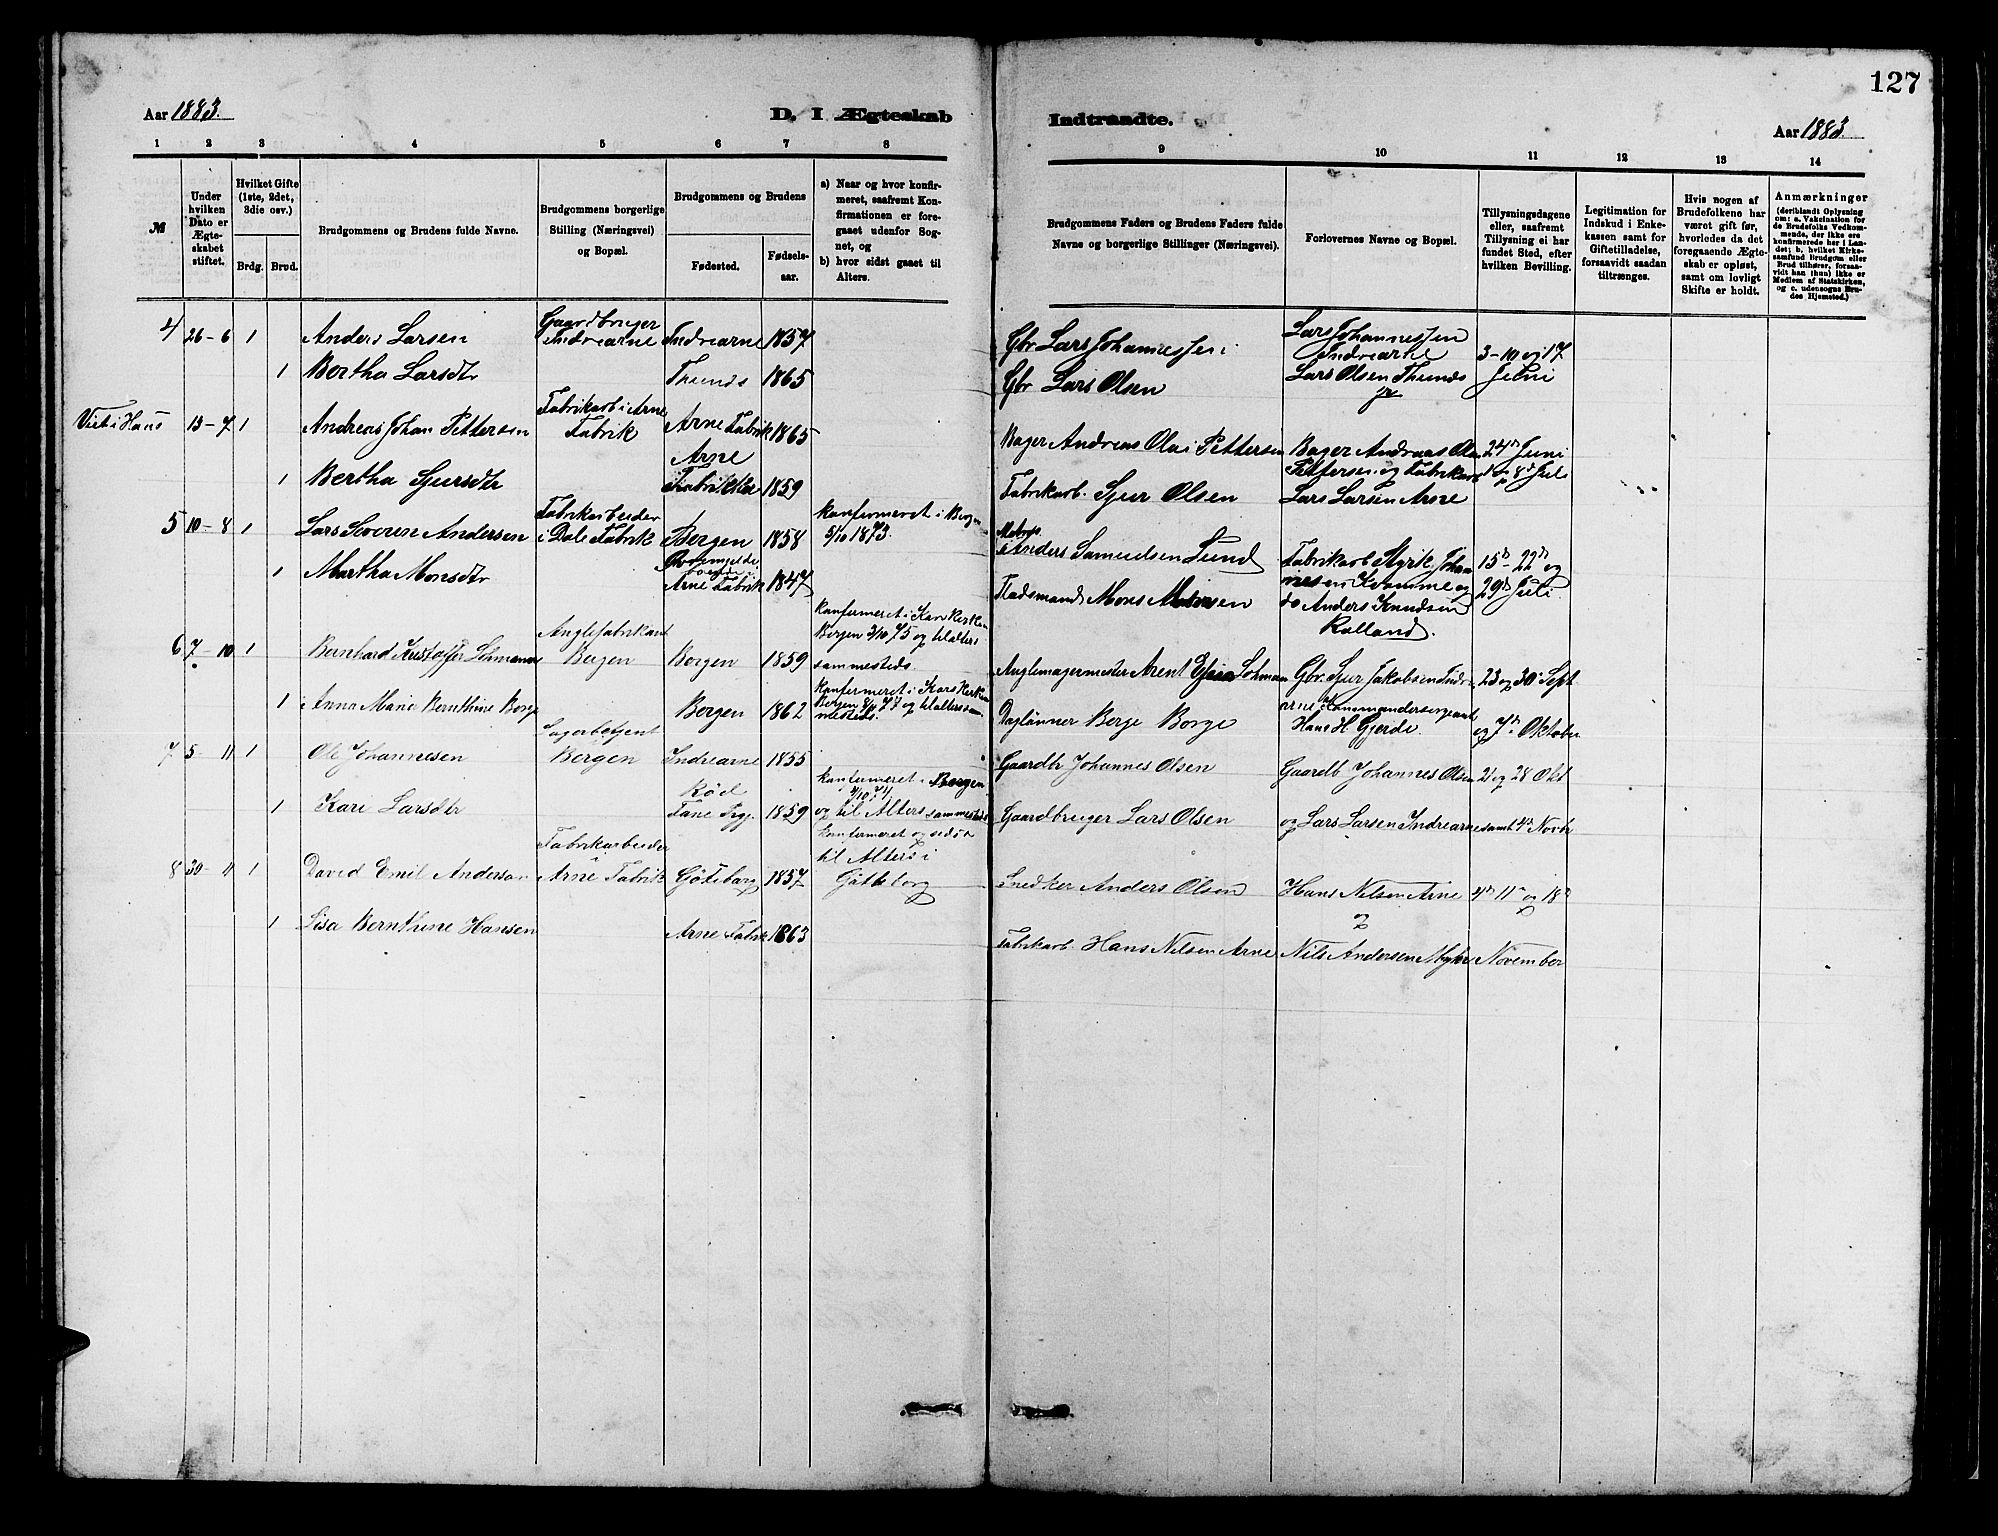 127
Aar 1883.
D. I Ægteskab
Indtraadte.
Aar 1883.
1 2 3 4 5 6 7 8
9 10 11 12 13 14
№
Under hvilken Dato er Ægteskabet stiftet.
Hvilket Gifte (1ste, 2det, 3die osv.)
Brdg. Brud.
Brudgommens og Brudens fulde Navne.
Brudgommens borgerlige Stilling (Næringsvei) og Bopæl.
Brudgommens og Brudens
Fødested.
Fødselsaar.
a) Naar og hvor konfirmeret, saafremt Konfirmationen er foregaaet udenfor Sognet, og
b) hvor sidst gaaet til Alters.
Brudgommens Faders og Brudens Faders fulde Navne og borgerlige Stillinger (Næringsvei).
Forlovernes Navne og Bopæl.
Tillysningsdagene eller, saafremt Tillysning ei har fundet Sted, efter hvilken Bevilling.
Legitimation for Indskud i Enkekassen samt for Giftetilladelse, forsaavidt saadan tiltrænges.
Hvis nogen af Brudefolkene har været gift før, hvorledes da det foregaaende Ægteskab er opløst, samt om lovligt Skifte er holdt.
Anmærkninger
(deriblandt Oplysning om: a. Vakcination for de Brudefolks Vedkommende, der ikke ere konfirmerede her i Landet; b, hvilket Kirkesamfund Brudgom eller Brud tilhører, forsaavidt han (hun) ikke er Medlem af Statskirken, og c. udensogns Brudes Hjemsted.)
4 26-6 1 Anders Larsen Gaardbruger Indrearne Indrearne 1857 Gbr Lars Johannessen Lars Johannessen Indrearne 3-10 og 17
1 Bertha Larsdtr Thunes 1865 Gbr Lars Olsen Lars Olsen Thunes Juni
Viet i Haus 15-7 1 Andreas Johan Pettersen Fabrikarb i Arne Fabrik Arne Fabrik 1865 Bager Andreas Olai Pettersen Bager Andreas Olai 24de Juni
1 Bertha Sjursdtr Arne Fabrikker 1859 Fabrikarb. Sjur Olsen Pettersen og Fabrikarb Lars Larsen Arne 8d Juli
5 10-8 1 Lars Severen Andersen Fabrikarbeider i Dale Fabrik Bergen 1858 konfermeret i Bergen 5/10 1873. Anders Samuelsen Lund Fabrikarb Styrik Johannesen Kvamme og 15de - 22de og
1 Martha Monsdtr Arne Fabrik 1847 Pladsmand Mons Monsen do Anders Knudsen Rolland. 29de Juli
6 7-10 1 Bernhard Kristoffer Lohmann Anglefabrikant Bergen Bergen 1859 konfermeret i Kors Kerken Bergen 3/10 75 og til alters sammesteds. Anglemagermester Arent Lohmann Gbr. Sjur Jakobsen Indre 23 og 30 Sept
1 Anna Marie Bernthine Borge Bergen 1862 konfermeret i Kors Kerken Bergen 77 og til alters sammesteds. Daglønner Berge Borge arne Kommandersergeant Hans H Gjerde. og 7de Oktober
7 5-11 1 Ole Johannesen Lagerbetjent Bergen Indrearne 1855 Gaardbr Johannes Olsen Gaardb Johannes Olsen 21 og 28 Okt
1 Kari Larsdtr Rød Fane Prgj. 1859 konfermeret i Bergen 74 og til Alters sammesteds Gaardbruger Lars Olsen og Lars Larsen Indrearne samt 4de Novbr
8 30-11 1 David Emil Anderson Fabrikarbeider Arne Fabrik Göteborg 1857 konfermeret og sidst til Alters i Göteborg Snedker Anders Olsen Hans Nilsen Arne og 4de 11te og 18de
1 Lisa Bernthine Hansen Arne Fabrik 1863 Fabrikarb. Hans Nilsen Arne Nils Andersen Mykr November